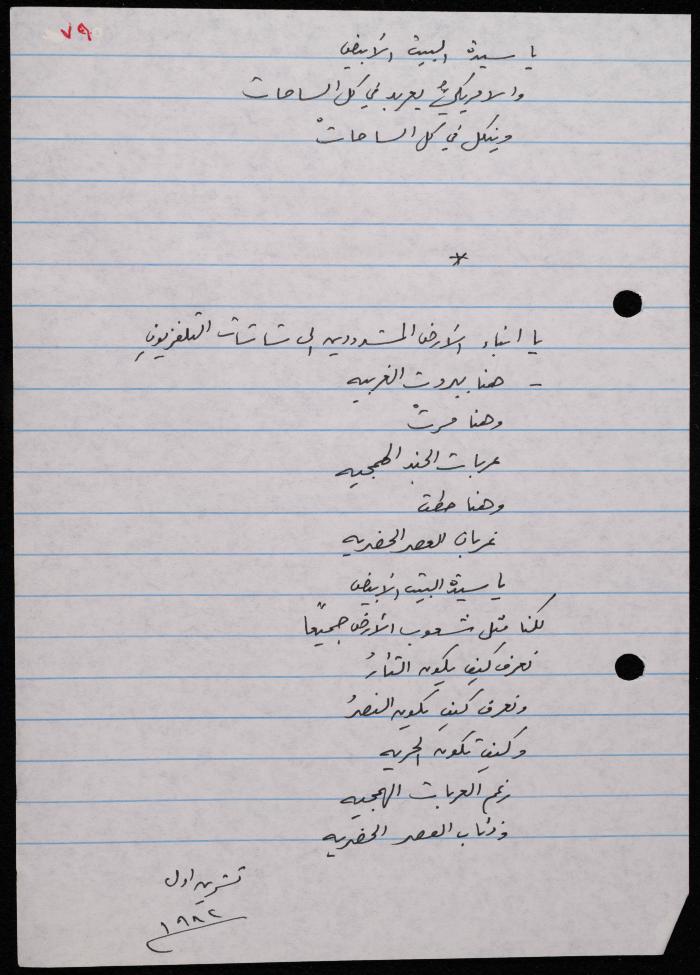 ٧٩
يا سيدة البيت الأبيض
والامريكيُّ يعربد في كل الساحات
وينكل في كل الساحاتْ
*
يا ابناء الأرض المشدودين الى شاشات التلفزيونِ
- هنا بيروت الغربيه
وهنا مرتْ
عربات الجند الهمجيه
وهنا حطت
غربان العصر الحضريه
يا سيدة البيت الأبيض
لكنا مثل شعوب الأرض جميعاً
نعرف كيف يكون الثأرُ
ونعرف كيف يكون النصرُ
وكيف تكون الحريه
رغم العربات الهمجيه
وذئاب العصر الحضريه
تشرين اول
١٩٨٢